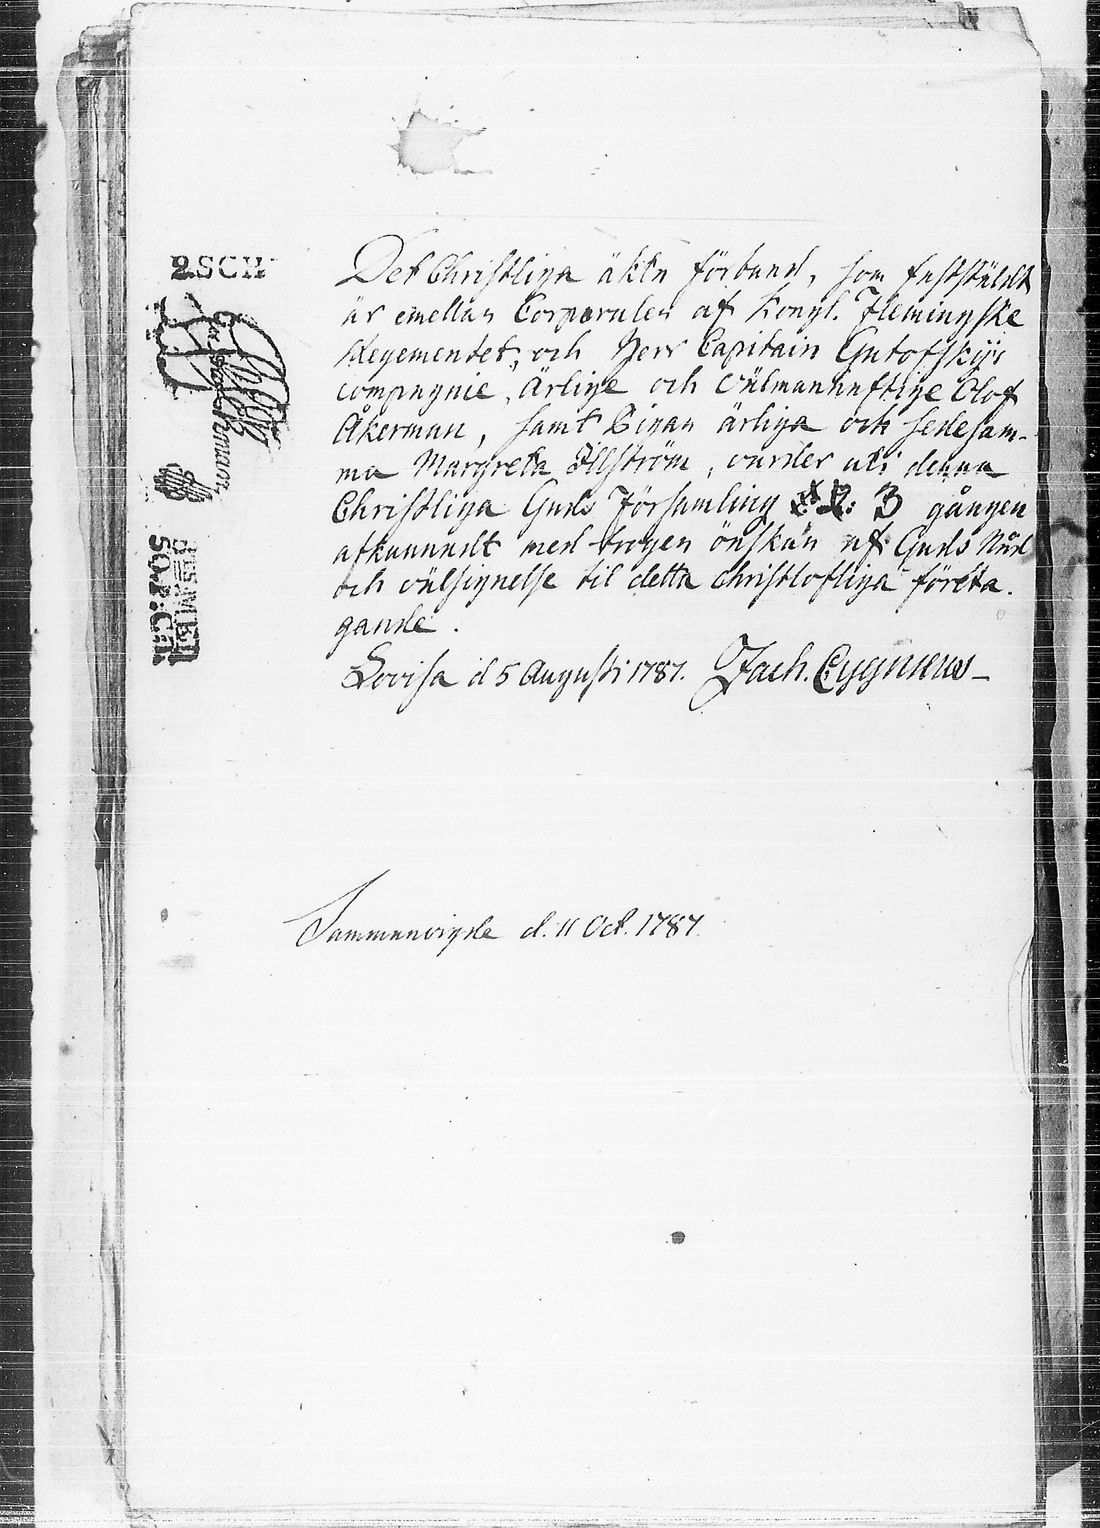 2.SCH
Det Christliga äkta förbund, som faststäldt
är emellan Corporalen af Kongl. Flemingske
Regementet, och Herr Capitain Gutofskijs
compagnie, Ärlige och Välmanhaftige Olof
Åkerman, samt Pigan ärliga och sedesam-
ma Margreta Ellström, varder uti denna
Christliga Guds Församling 3 gången
afkunnadt med trogen önskan af Guds Nåd
och välsignelse til detta christlofliga företa.
gande.
Lovisa d 5 Augusti 1787. Zach. Cygnæus
Sammanvigde d. 11 Oct. 1787.